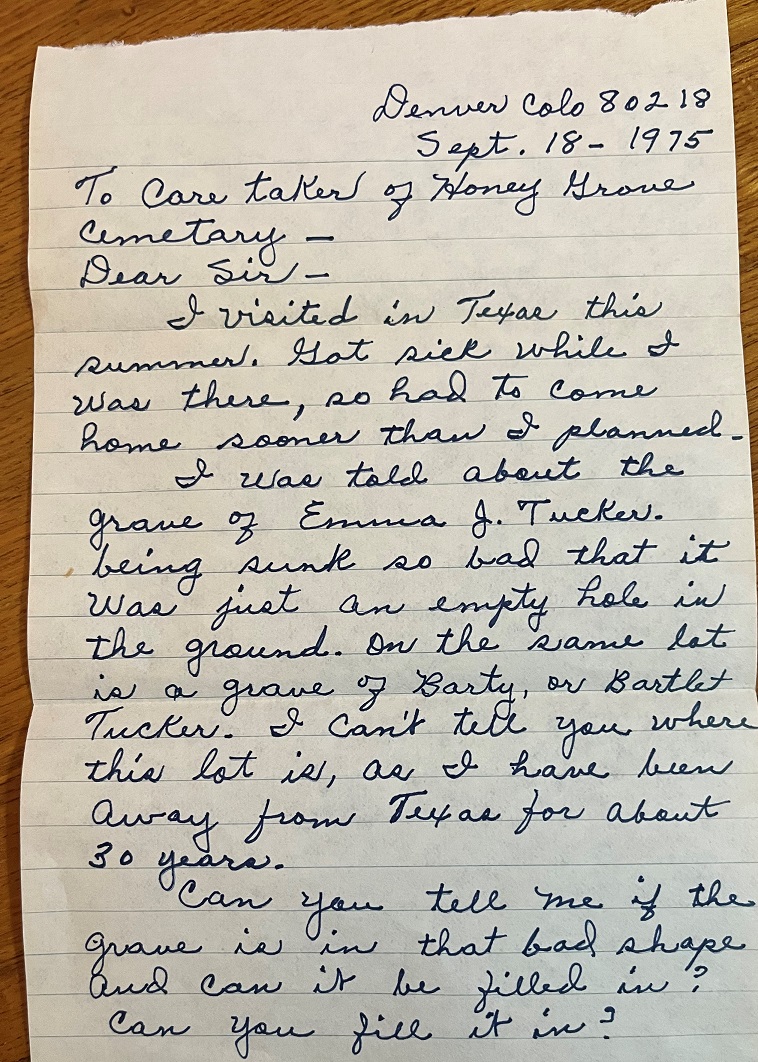 Denver Colo 80218
Sept. 18 - 1975
To Care taker of Honey Grove
Cemetary -
Dear Sir -
I visited in Texas this
summer. Got sick while I
was there, so had to come
home sooner than I planned.
I was told about the
grave of Emma J. Tucker.
being sunk so bad that it
was just an empty hole in
the ground. On the same lot
is a grave of Barty, or Bartlet
Tucker. I can't tell you where
this lot is, as I have been
away from Texas for about
30 years.
Can you tell me if the
grave is in that bad shape
and can it be filled in?
Can you fill it in?